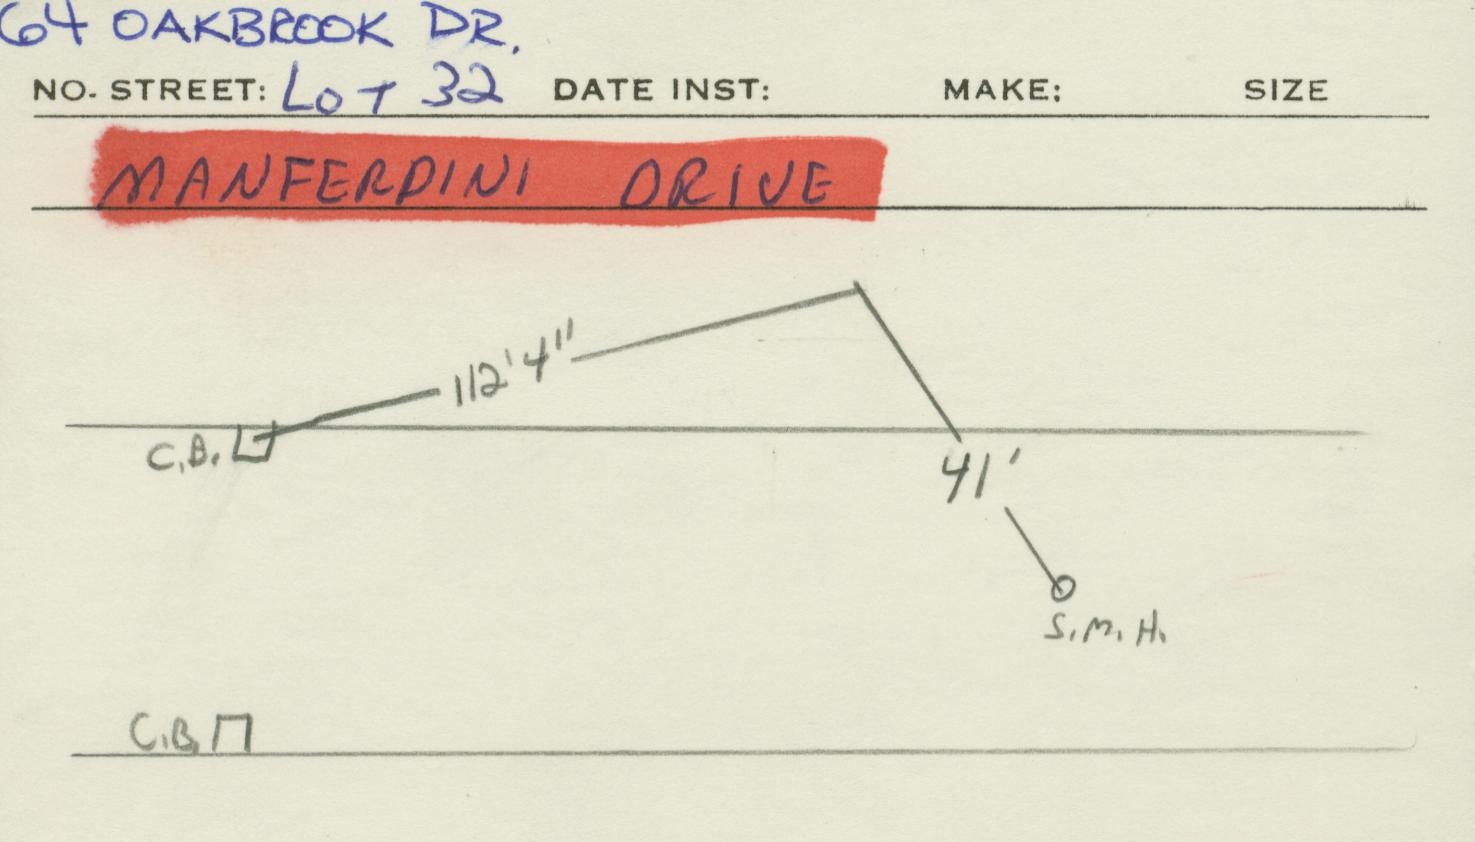 64 OAKBROOK DR.
NO. STREET: LOT 32 DATE INST: MAKE: SIZE
MANFERDINI DRIVE
112'4"
C.B.
41'
S.M.H.
C.B.